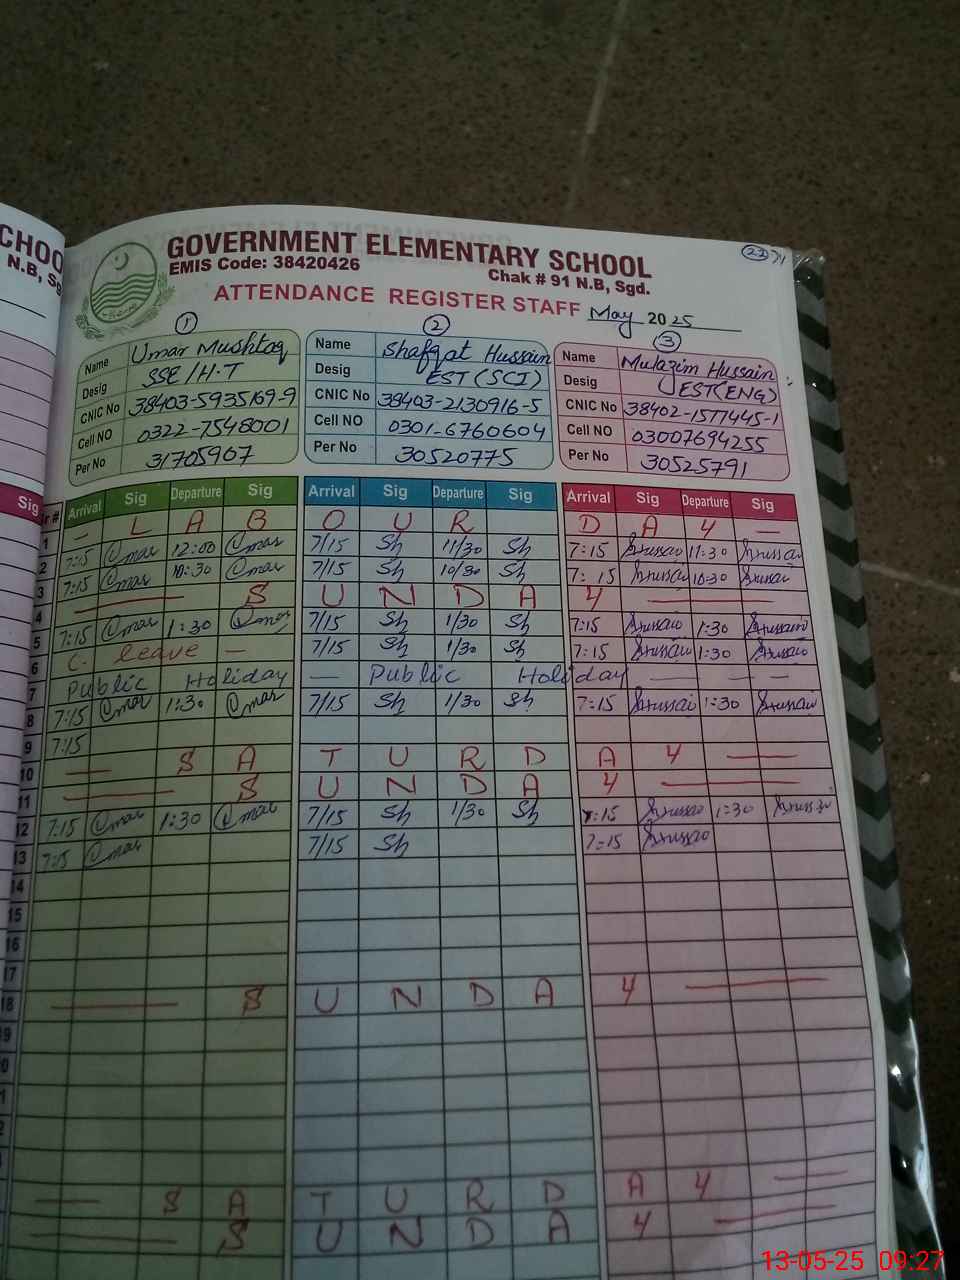 CHOO
N.B, Sg
Sig
GOVERNMENT ELEMENTARY SCHOOL
EMIS Code: 38420426 Chak # 91 N.B, Sgd.
ATTENDANCE REGISTER STAFF May 2025
1 2 3
Name Umar Mushtaq
Desig SSE/H.T
CNIC No 38403-5935169-9
Cell NO 0322-7548001
Per No 31705907
Name Shafqat Hussain
Desig EST (SCI)
CNIC No 38403-2130916-5
Cell NO 0301-6760604
Per No 30520775
Name Mulazim Hussain
Desig EST(ENG)
CNIC No 38402-1577445-1
Cell NO 03007694255
Per No 30525791
Sr # Arrival Sig Departure Sig Arrival Sig Departure Sig Arrival Sig Departure Sig
1 — L A B O U R D A Y —
2 7:15 Omar 12:00 Omar 7/15 Sh 11/30 Sh 7:15 Hussain 11:30 Hussain
3 7:15 Omar 10:30 Omar 7/15 Sh 10/30 Sh 7:15 Hussain 10:30 Hussain
4 S U N D A Y
5 7:15 Omar 1:30 Omar 7/15 Sh 1/30 Sh 7:15 Hussain 1:30 Hussain
6 C. leave — 7/15 Sh 1/30 Sh 7:15 Hussain 1:30 Hussain
7 Public Holiday — Public Holiday — — —
8 7:15 Omar 1:30 Omar 7/15 Sh 1/30 Sh 7:15 Hussain 1:30 Hussain
9 7:15
10 — S A T U R D A Y —
11 — S U N D A Y —
12 7:15 Omar 1:30 Omar 7/15 Sh 1/30 Sh 7:15 Hussain 1:30 Hussain
13 7:15 Omar 7/15 Sh 7:15 Hussain
14
15
16
17
18 — S U N D A Y —
9
0
1
2
— S A T U R D A Y —
— S U N D A Y —
13-05-25 09:27